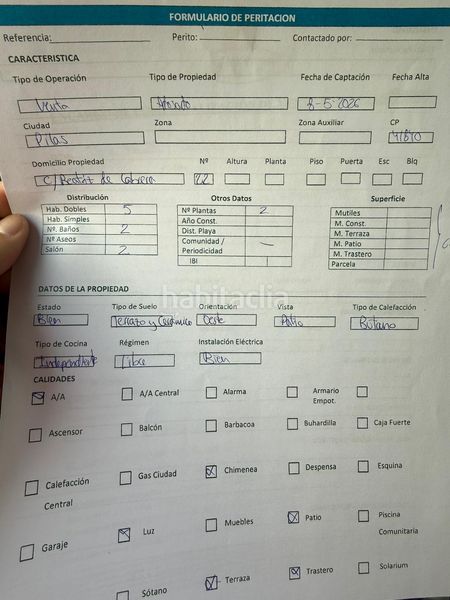 FORMULARIO DE PERITACION
Referencia: Perito: Contactado por:
CARACTERISTICA
Tipo de Operación Tipo de Propiedad Fecha de Captación Fecha Alta
Venta 8-5-2026
Ciudad Zona Zona Auxiliar CP
Pilas 41840
Domicilio Propiedad Nº Altura Planta Piso Puerta Esc Blq
C/ Beatriz de Cabrera 22
Distribución Otros Datos Superficie
Hab. Dobles 5 Nº Plantas 2 Mutiles
Hab. Simples Año Const. M. Const.
Nº. Baños 2 Dist. Playa M. Terraza
Nº Aseos Comunidad / M. Patio
Salón 2 Periodicidad M. Trastero
IBI Parcela
habitaclia
DATOS DE LA PROPIEDAD
Estado Tipo de Suelo Orientación Vista Tipo de Calefacción
Bien Terrazo y Cerámico Oeste Patio Butano
Tipo de Cocina Régimen Instalación Eléctrica
Independiente Libre Bien
CALIDADES
A/A A/A Central Alarma Armario Empot.
Ascensor Balcón Barbacoa Buhardilla Caja Fuerte
Calefacción Central Gas Ciudad Chimenea Despensa Esquina
Garaje Luz Muebles Patio Piscina Comunitaria
Sótano Terraza Trastero Solarium